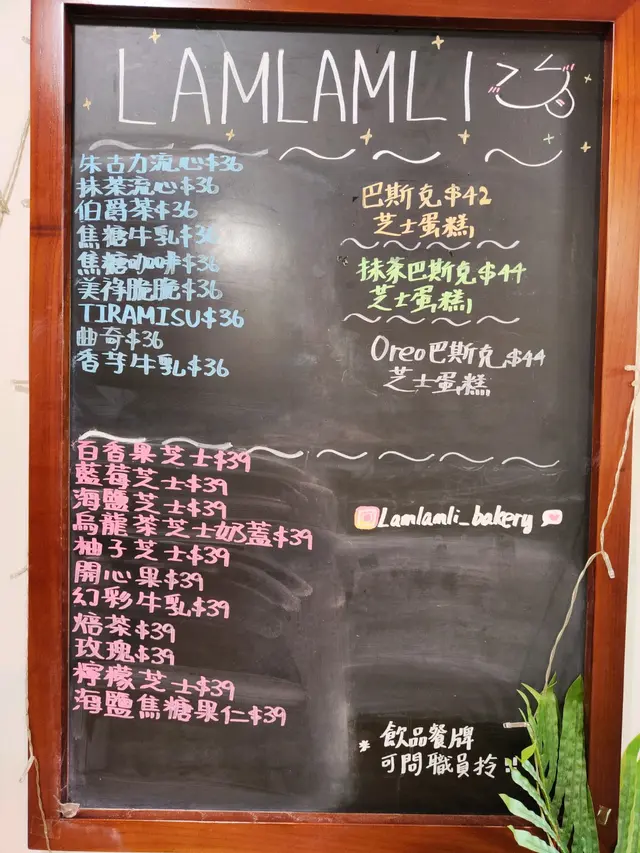 LAMLAMLI
朱古力流心$36
抹茶流心$36
伯爵茶$36
焦糖牛乳$36
焦糖咖啡$36
美祿脆脆$36
TIRAMISU$36
曲奇$36
香芋牛乳$36
巴斯克$42
芝士蛋糕
抹茶巴斯克$44
芝士蛋糕
Oreo巴斯克$44
芝士蛋糕
百香果芝士$39
藍莓芝士$39
海鹽芝士$39
烏龍茶芝士奶蓋$39
柚子芝士$39
開心果$39
幻彩牛乳$39
焙茶$39
玫瑰$39
檸檬芝士$39
海鹽焦糖果仁$39
Lamlamli_bakery
* 飲品餐牌
可問職員拎!!